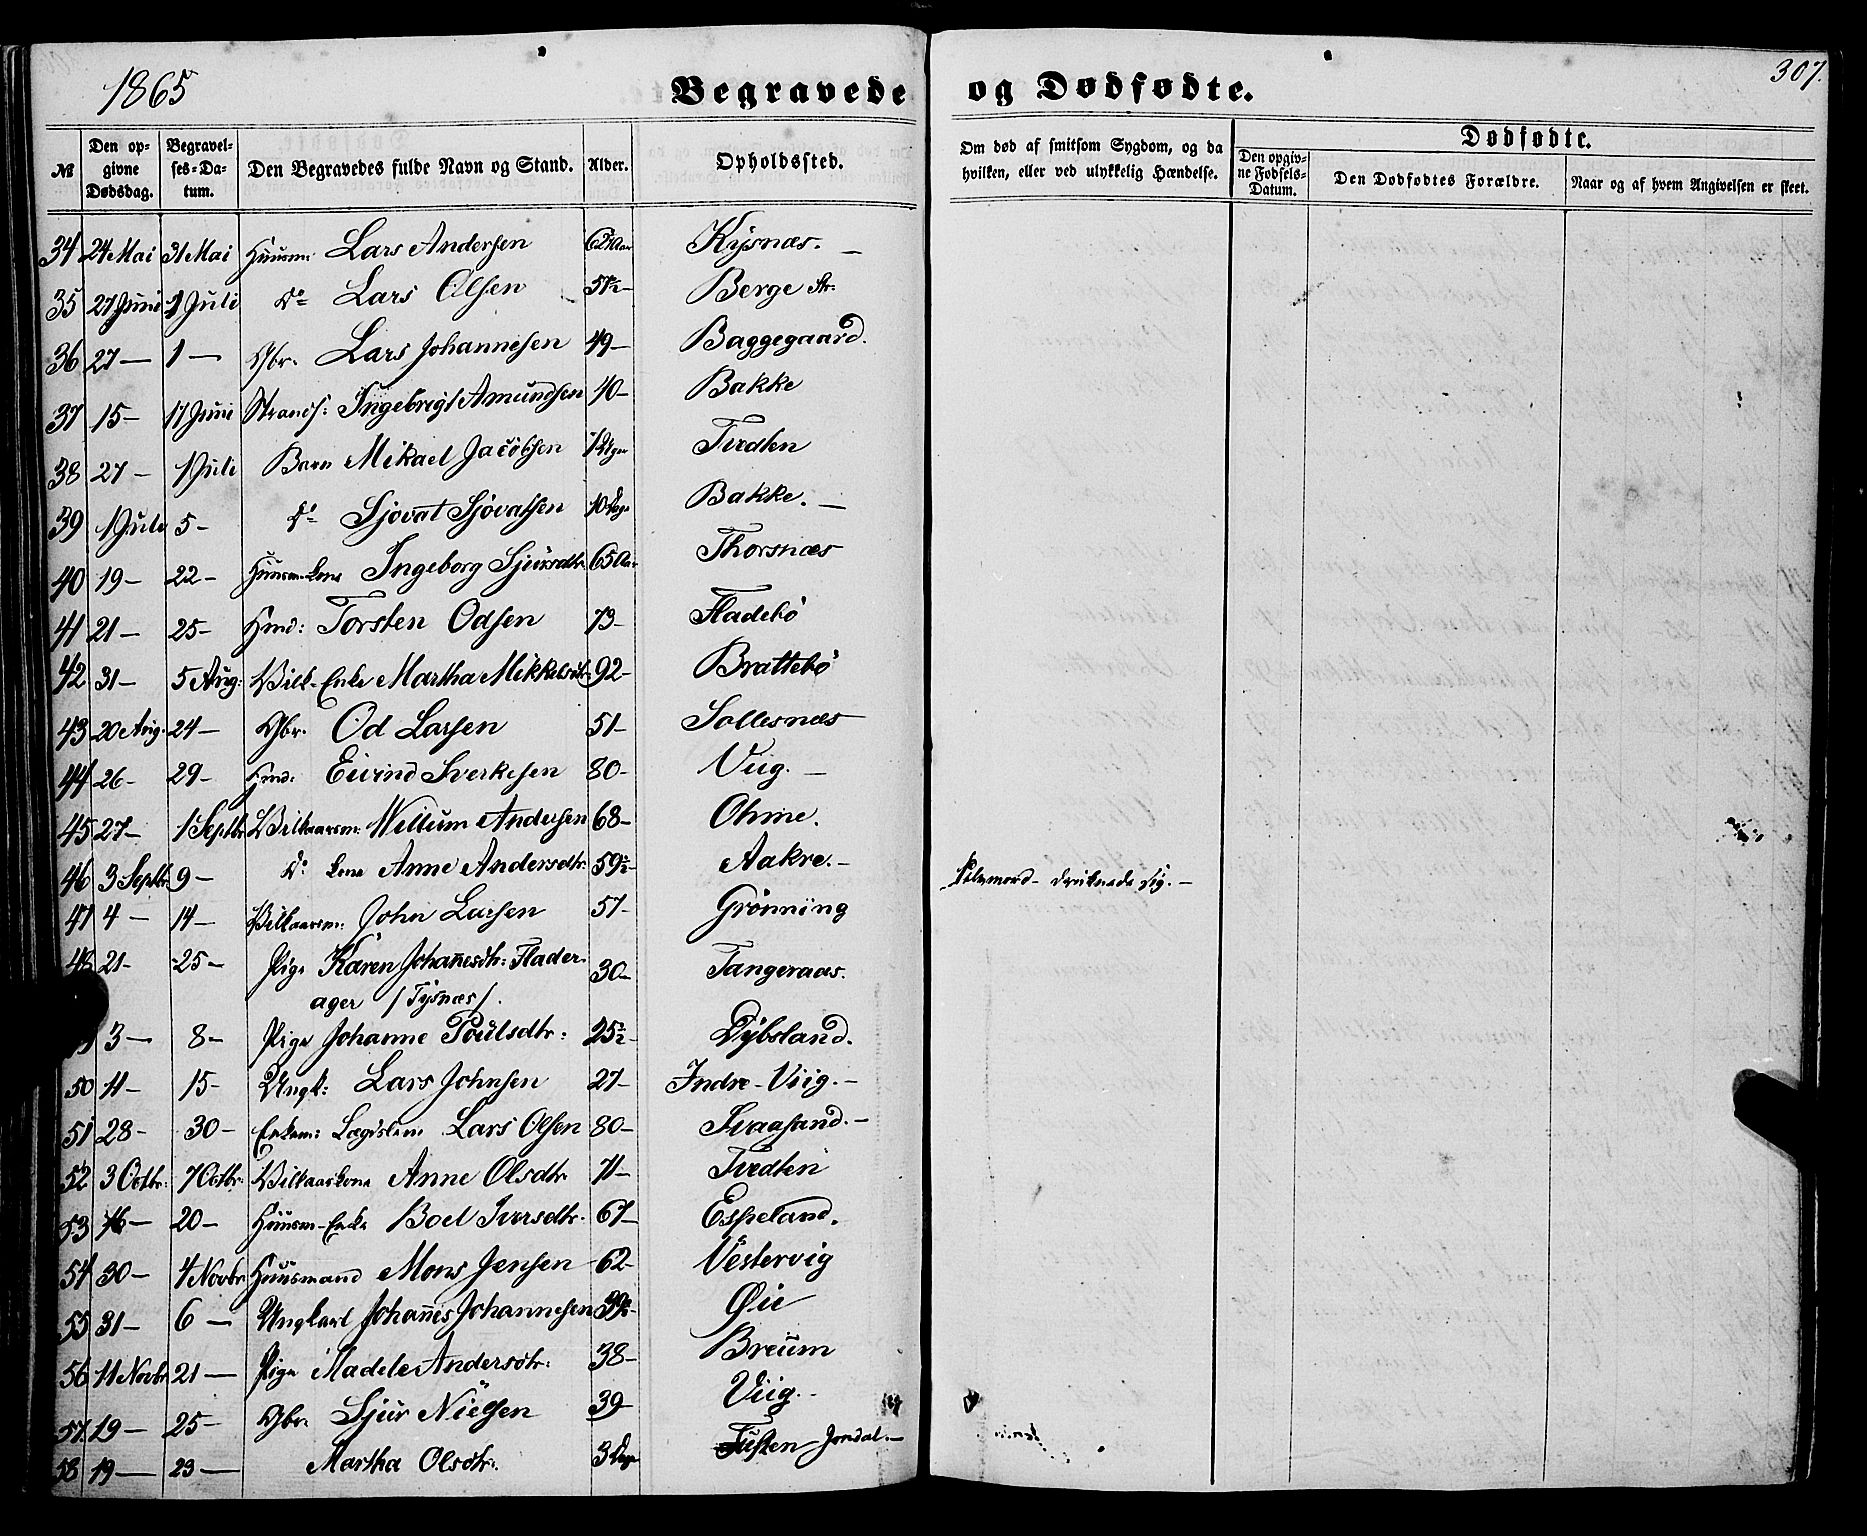 1865
Begravede og Dødfødte.
307.
№ Den opgivne Dødsdag. Begravelses-Datum. Den Begravedes fulde Navn og Stand. Alder. Opholdssted. Om død af smitsom Sygdom, og da hvilken, eller ved ulykkelig Hændelse. Dødfødte. Den opgivne Fødsels-Datum. Den Dødfødtes Forældre. Naar og af hvem Angivelsen er skeet.
34 24 Mai 31 Mai Huusm: Lars Andersen Kysnæs. —
35 27 Juni 1 Juli Do Lars Olsen Berge Str.
36 27 — 1 — Gbr. Lars Johannesen 49 — Baggegaard.
37 15 — 17 Juni Strands: Ingebrigt Amundsen 40 — Bakke
38 27 — 1 Juli Barn Mikael Jacobsen Tvedten
39 1 Juli 5 — Do Sjovat Sjovatsen 10 Dage Bakke. —
40 19 — 22 — Huusm. Kone Ingeborg Sjursdtr. 65 Aar Thorsnæs
41 21 — 25 — Hmd: Torsten Odsen 73 — Fladebø
42 31 — 5 Aug: Vilk. Enke Martha Mikkelsdtr. 92 — Brattebø
43 20 Aug. 24 — Gbr. Od Larsen 51 — Sollesnæs
44 26 — 29 — Hmd: Eivind Sverkesen 80 — Viig. —
45 27 — 1 Septbr. Vilkaarsm: Willum Andersen 68 — Ohme.
46 3 Septbr. 9 — Do Kone Anne Andersdtr. 59½ — Aakre. — Selvmord — druknede sig. —
47 4 — 14 — Vilkaarsm: John Larsen 57 — Grønning
48 21 — 25 — Pige Karen Johannesdtr. Flader-
ager / Tysnæs /. 30 — Tangeraas.
3 — 8 — Pige Johanne Poulsdtr: 25½ — Dybsland.
50 11 — 15 — Ungk: Lars Johnsen 27 — Indre-Viig. —
51 28 — 30 — Enkem: Lægdslem Lars Olsen 80 — Svaasand. —
52 3 Octbr. 7 Octbr. Vilkaarskone Anne Olsdtr. 71 — Tvedten
53 16 — 20 — Huusm-Enke Boel Iversdtr. 67 — Espeland.
54 30 — 4 Novbr. Huusmand Mons Jensen 62 — Vestervig
55 31 — 6 — Ungkarl Johannes Johannesen Øie
56 11 Novbr. 21 — Pige Madele Andersdtr. 38 — Breum
57 19 — 25 — Gbr. Sjur Nielsen 39 — Viig. —
58 19 — 23 — Martha Olsdtr. 3 Dage Jondal. —